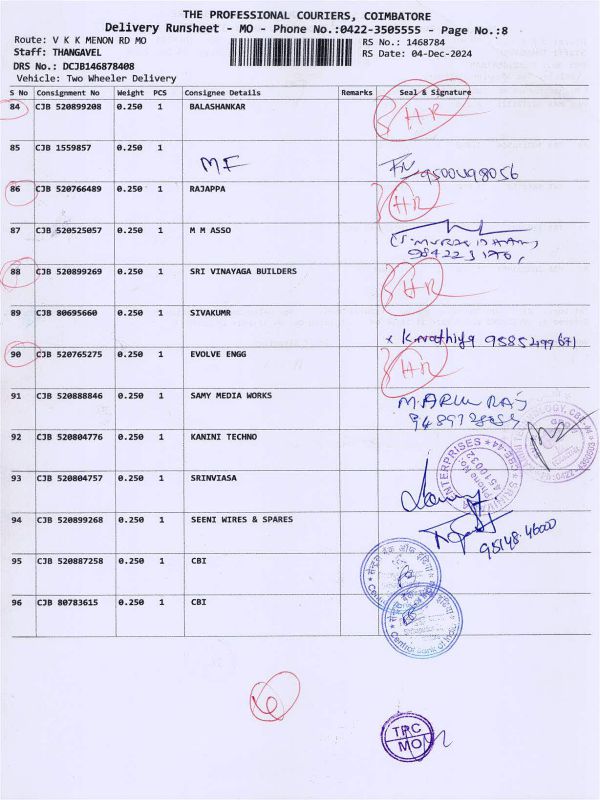 THE PROFESSIONAL COURIERS, COIMBATORE
Delivery Runsheet - MO - Phone No.:0422-3505555 - Page No.:8
Route: V K K MENON RD MO
RS No.: 1468784
Staff: THANGAVEL
RS Date: 04-Dec-2024
DRS No.: DCJB146878408
Vehicle: Two Wheeler Delivery
S No Consignment No Weight PCS Consignee Details Remarks Seal & Signature
84 CJB 520899208 0.250 1 BALASHANKAR HR
85 CJB 1559857 0.250 1
MF
9500498056
86 CJB 520766489 0.250 1 RAJAPPA HR
87 CJB 520525057 0.250 1 M M ASSO
88 CJB 520899269 0.250 1 SRI VINAYAGA BUILDERS HR
89 CJB 80695660 0.250 1 SIVAKUMR
90 CJB 520765275 0.250 1 EVOLVE ENGG HR
91 CJB 520888846 0.250 1 SAMY MEDIA WORKS
92 CJB 520804776 0.250 1 KANINI TECHNO
93 CJB 520804757 0.250 1 SRINVIASA
94 CJB 520899268 0.250 1 SEENI WIRES & SPARES
95148-46000
95 CJB 520887258 0.250 1 CBI
96 CJB 80783615 0.250 1 CBI
Central Bank of India
TPC
MO